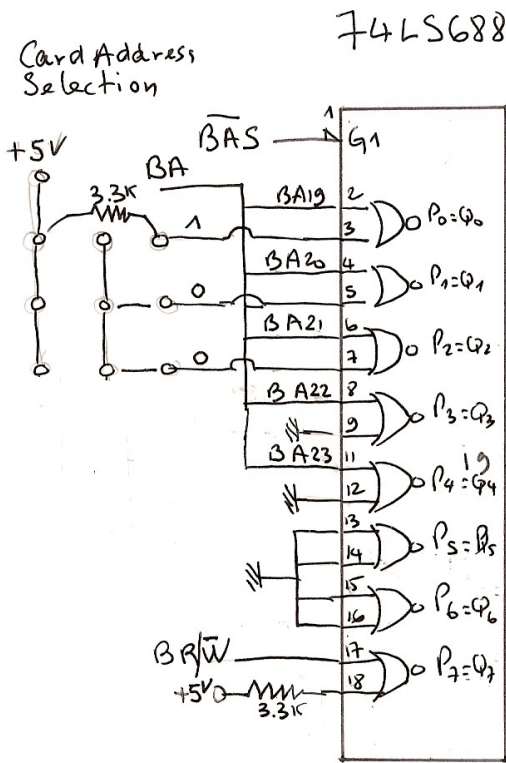 74LS688
Card Address
Selection
+5V
3.3K
1
0
0
BAS
BA
1
G1
BA19 2
3
P0=Q0
BA20 4
5
P1=Q1
BA21 6
7
P2=Q2
BA22 8
9
P3=Q3
BA23 11
12
19
P4=Q4
13
14
P5=Q5
15
16
P6=Q6
BR/W 17
+5V 18
3.3K
P7=Q7